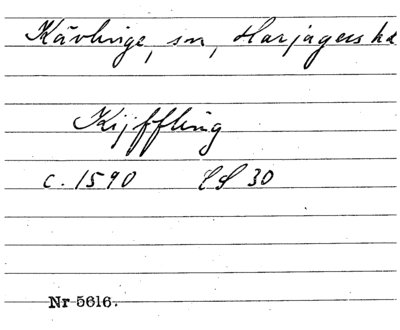 Kävlinge, sn, Harjagers hd
Kijffling
c. 1590 LS 30
Nr 5616.